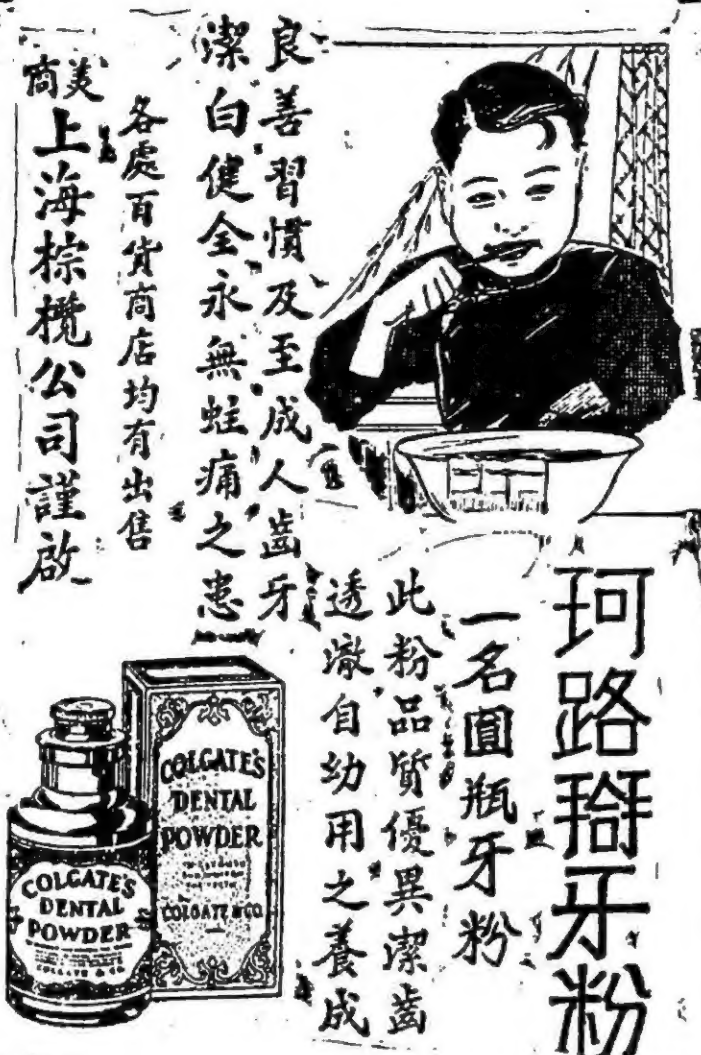 珂路搿牙粉
一名圓瓶牙粉
此粉品質優異潔齒
透澈自幼用之養成
良善習慣及至成人齒牙
潔白健全永無蛀痛之患
各處百貨商店均有出售
美商
上海棕欖公司謹啟
COLGATE'S
DENTAL
POWDER
COLGATE & CO
COLGATE'S
DENTAL
POWDER
COLGATE & CO